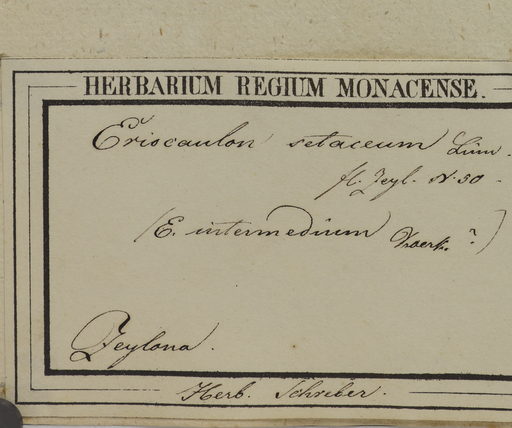 HERBARIUM REGIUM MONACENSE.
Eriocaulon setaceum Linn.
fl. Zeyl. N. 50
(E. intermedium Koern. ?)
Zeylona.
Herb. Schreber.